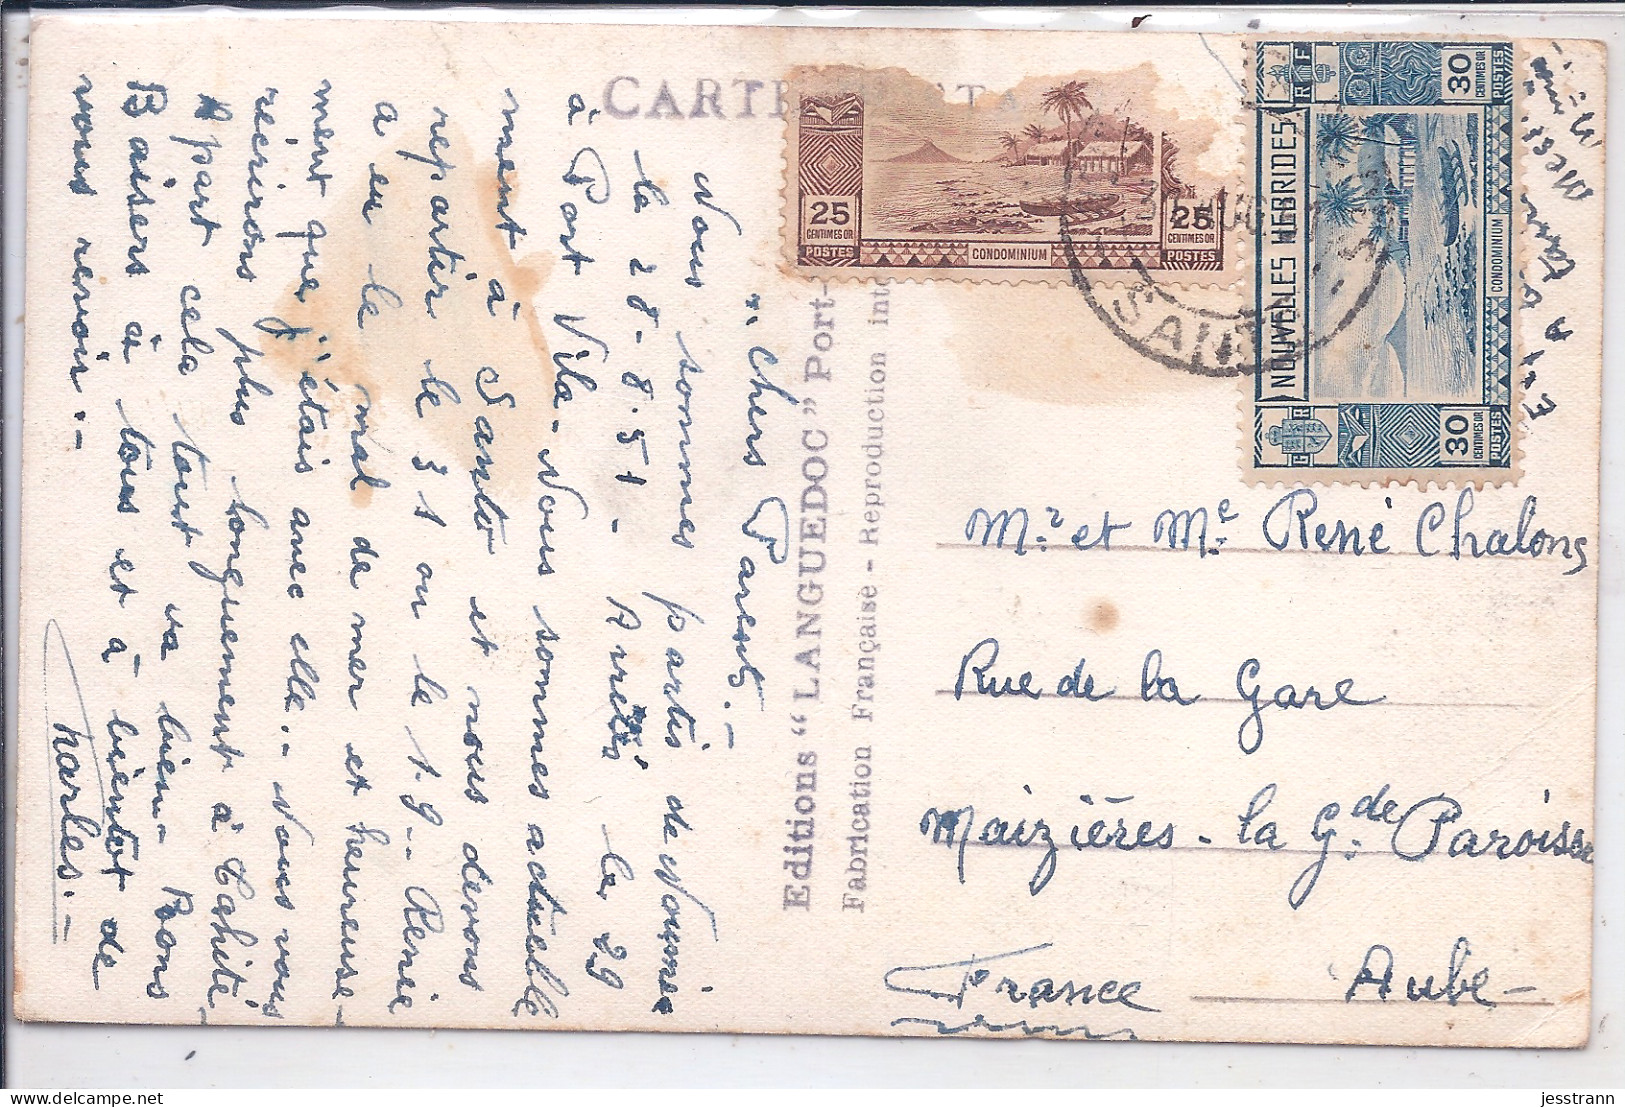 CARTE POSTA
"Chers Parents.-
Nous sommes partis de Nouméa
le 28-8-51- Arrivés le 29
à Port Vila- Nous sommes actuelle
ment à Santo et nous devons
repartir le 31 ou le 1.9.- Renée
a eu le mal de mer et heureuse-
ment que j'étais avec elle.- Nous vous
récrirons plus longuement à Tahiti-
A part cela tout va bien- Bons
Baisers à tous et à bientôt de
vous revoir.-
Charles.-
Editions "LANGUEDOC" Port-
Fabrication Française - Reproduction inte
25 CENTIMES OR POSTES
CONDOMINIUM
25 CENTIMES OR POSTES
RF
30 CENTIMES OR POSTES
NOUVELLES HEBRIDES
CONDOMINIUM
GR
30 CENTIMES OR POSTES
SANTO
Mr. et Me. René Chalons
Rue de la Gare
Maizières-la Gde Paroisse
Aube-
France
jesstrann